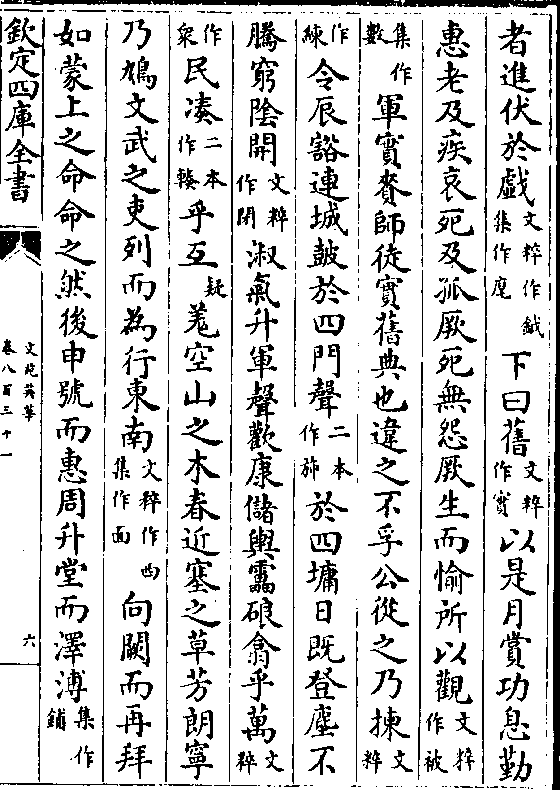 者進伏於戯文粹作鉞集作麾下曰舊文粹作實以是月賞功息勤
惠老及疾哀死及孤厥死無怨厥生而愉所以觀文粹作被
集作數軍實賚師徒實舊典也違之不孚公從之乃揀文粹
作練令辰谿連城皷於四門聲二本作斾於四墉日既登塵不
騰窮陰開文粹作閉淑氣升軍聲歡康儲輿靁硠翕乎萬文粹
作衆民凑二本作輳乎互疑羗空山之木春近塞之草芳朗寧
乃鳩文武之吏列而為行東南文粹作西集作面向闕而再拜
如蒙上之命命之然後申號而惠周升堂而澤溥集作鋪
欽定四庫全書
文苑英華
卷八百三十一
六